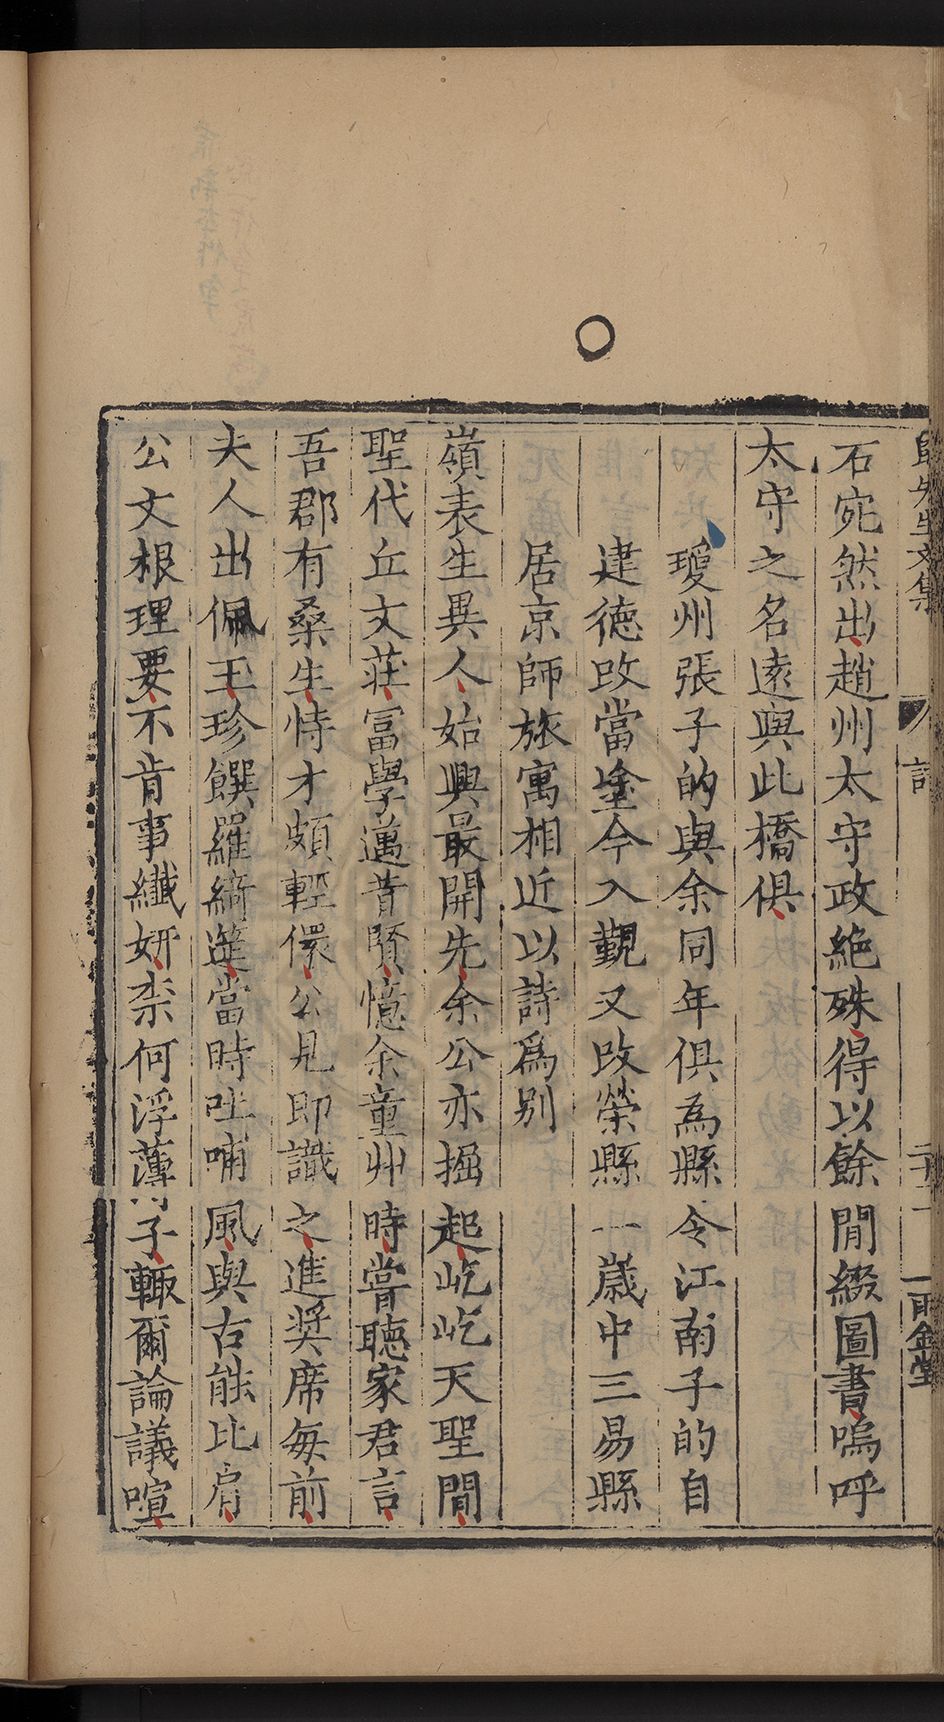 石宛然出趙州太守政絶殊得以餘閒綴圖書嗚呼
太守之名遠與此橋俱
瓊州張子的與余同年俱為縣令江南子的自
建德改當塗今入覲又改榮縣一歲中三易縣
居京師旅寓相近以詩為别
嶺表生異人始興最開先余公亦掘起屹屹天聖間
聖代丘文莊富學邁昔賢憶余童丱時嘗聽家君言
吾郡有桑生恃才頗輕儇公見即識之進奖席每前
夫人出佩玉珍饌羅綺筵當時吐哺風與古能比肩
公文根理要不肯事纖妍柰何浮薄子輙爾論議喧